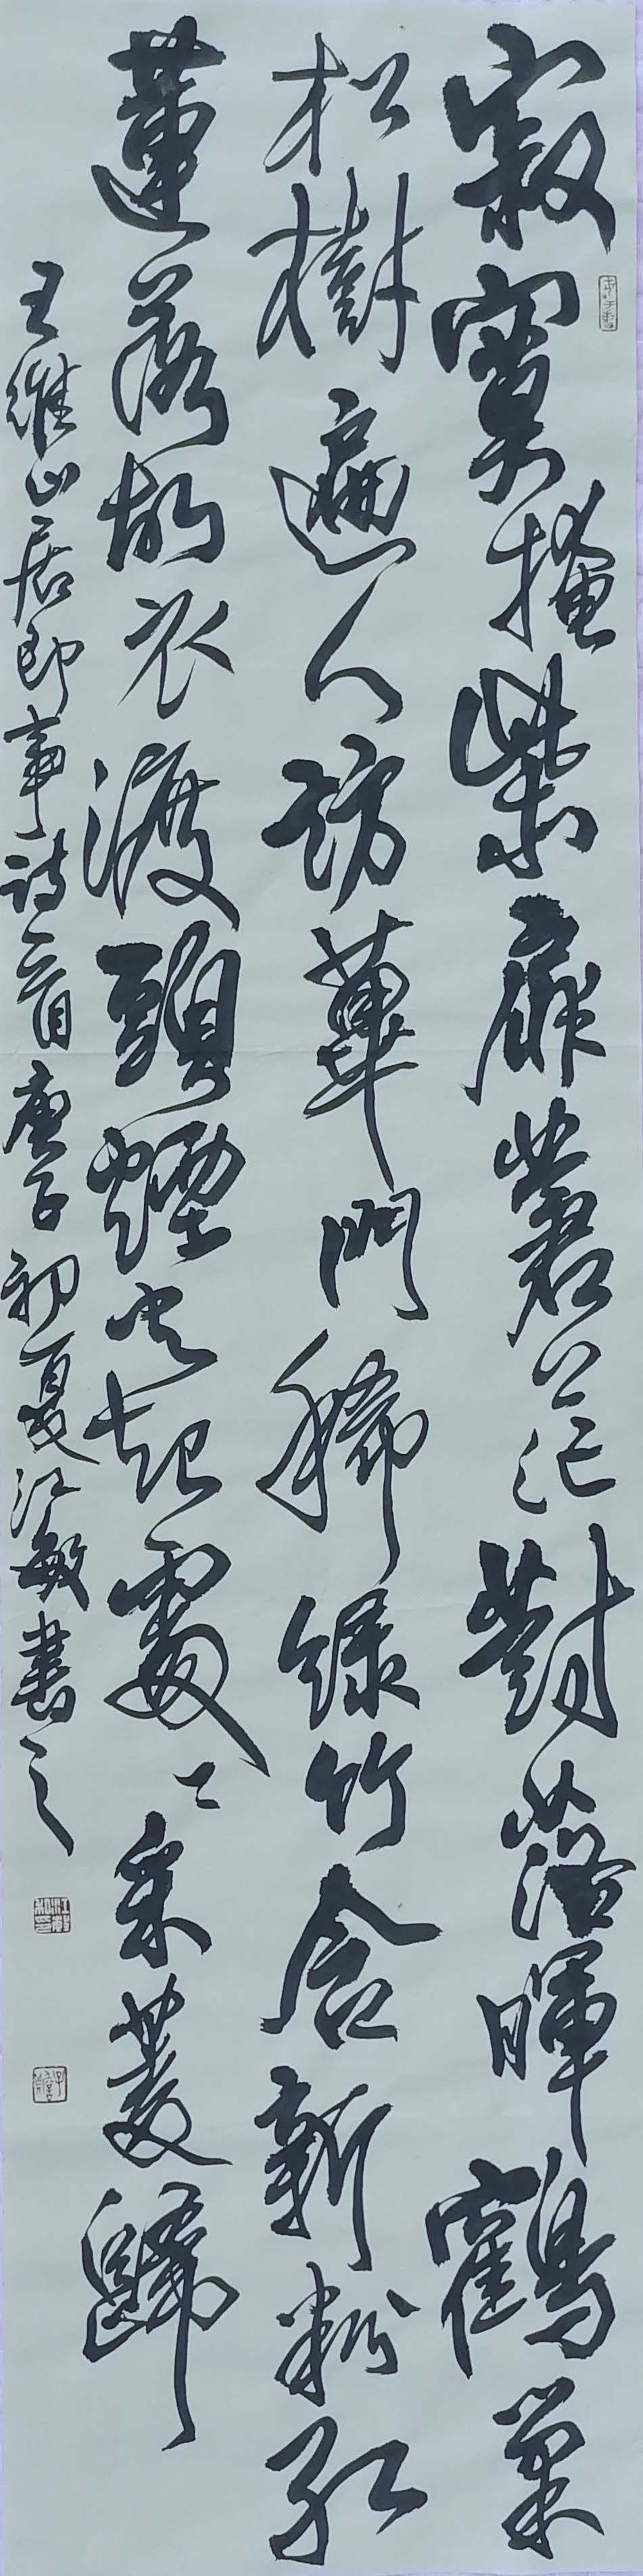 寂寞掩柴扉蒼茫對落暉鶴巢
松樹遍人訪蓽門稀綠竹含新粉紅
蓮落故衣渡頭煙火起處〻采菱歸
王維山居即事詩一首庚子初夏江敏書之